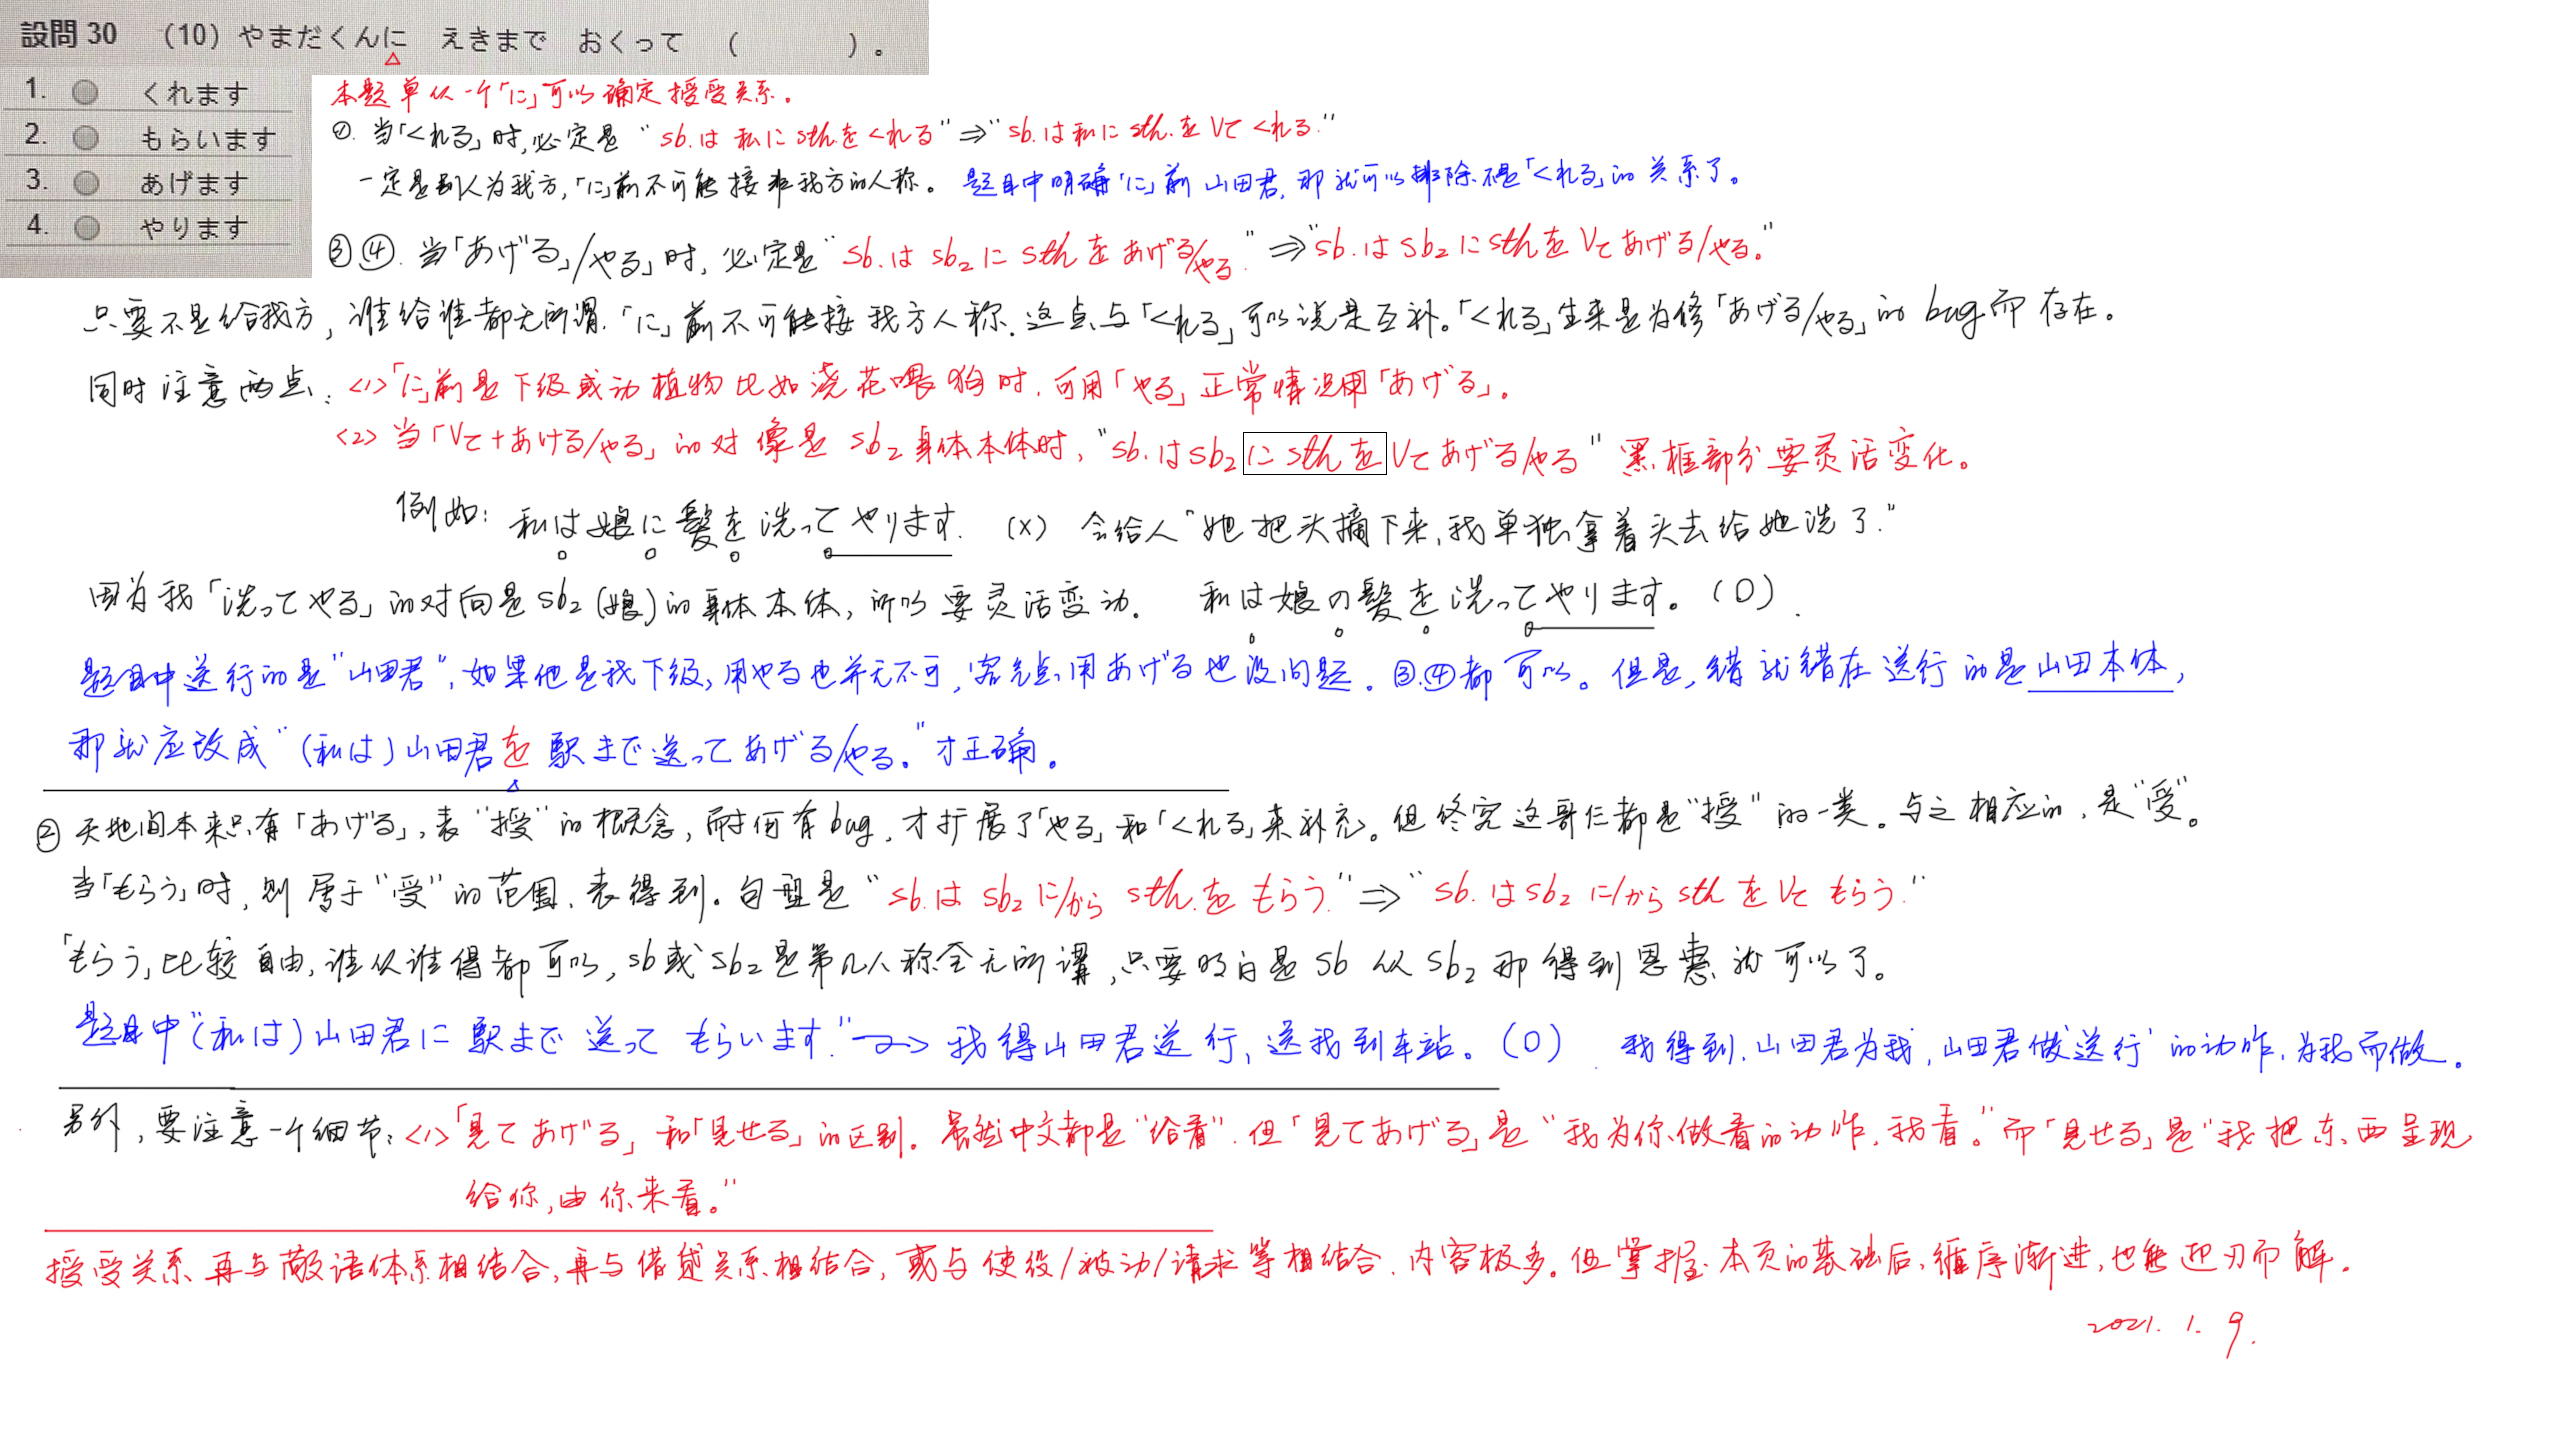 設問 30 （10）やまだくんに えきまで おくって （ ）。
1. くれます
2. もらいます
3. あげます
4. やります
本题单从一个「に」可以确定授受关系。
①. 当「くれる」时,必定是 “sb.は 私に sth.を くれる” ⇒ “sb.は私に sth.を Vて くれる.”
一定是别人为我方,「に」前不可能接非我方的人称。 题目中明确「に」前 山田君, 那就可以排除不是「くれる」的关系了。
③④. 当「あげる」/やる」时, 必定是 “sb.は sb2に sthを あげる/やる.” ⇒ “sb.は sb2に sthを Vてあげる/やる.”
只要不是给我方, 谁给谁都无所谓.「に」前不可能接我方人称. 这点与「くれる」可以说是互补。「くれる」生来是为修「あげる/やる」的 bug而存在。
同时注意两点: <1>「に」前是下级或动植物比如浇花喂狗时, 可用「やる」正常情况用「あげる」。
<2> 当「Vて+あける/やる」的对像是 sb2 身体本体时, “sb.はsb2 に sthを Vてあげる/やる” 黑框部分要灵活变化。
例如: 私は娘に髪を洗ってやります. (×) 会给人“她把头摘下来,我单独拿着头去给她洗了.”
因为我「洗ってやる」的对向是sb2 (娘) 的身体本体, 所以要灵活变动. 私は娘の髪を洗ってやります。(O).
题目中送行的是“山田君”, 如果他是我下级, 用やる也并无不可, 客气点用あげる也没问题. ③.④都可以。但是, 错就错在送行的是山田本体,
那就应改成“(私は)山田君を 駅まで送ってあげる/やる。”才正确.
② 天地间本来只有「あげる」, 表“授”的概念, 耐何有bug, 才扩展了「やる」和「くれる」来补充. 但终究这哥仨都是“授”的一类。与之相应的, 是“受”。
当「もらう」时, 则属于“受”的范围, 表得到。句型是“sb.は sb2 に/から sth.を もらう.” ⇒ “sb.は sb2に/から sthを Vて もらう.”
「もらう」比较自由, 谁从谁得都可以, sb或 sb2是第几人称全无所谓, 只要明白是 sb 从 sb2 那得到恩惠就可以了。
题目中“(私は)山田君に 駅まで 送って もらいます.” ~> 我得山田君送行, 送我到车站。(O). 我得到, 山田君为我, 山田君做‘送行’的动作, 为我而做。
另外, 要注意一个细节: <1>「見てあげる」和「見せる」的区别. 虽然中文都是“给看”, 但「見てあげる」是“我为你做看的动作, 我看。”而「見せる」是“我把东西呈现
给你, 由你来看。”
授受关系 再与敬语体系相结合, 再与借贷关系相结合, 或与使役/被动/请求等相结合, 内容极多。但掌握本页的基础后, 循序渐进, 也能迎刃而解.
2021. 1. 9.